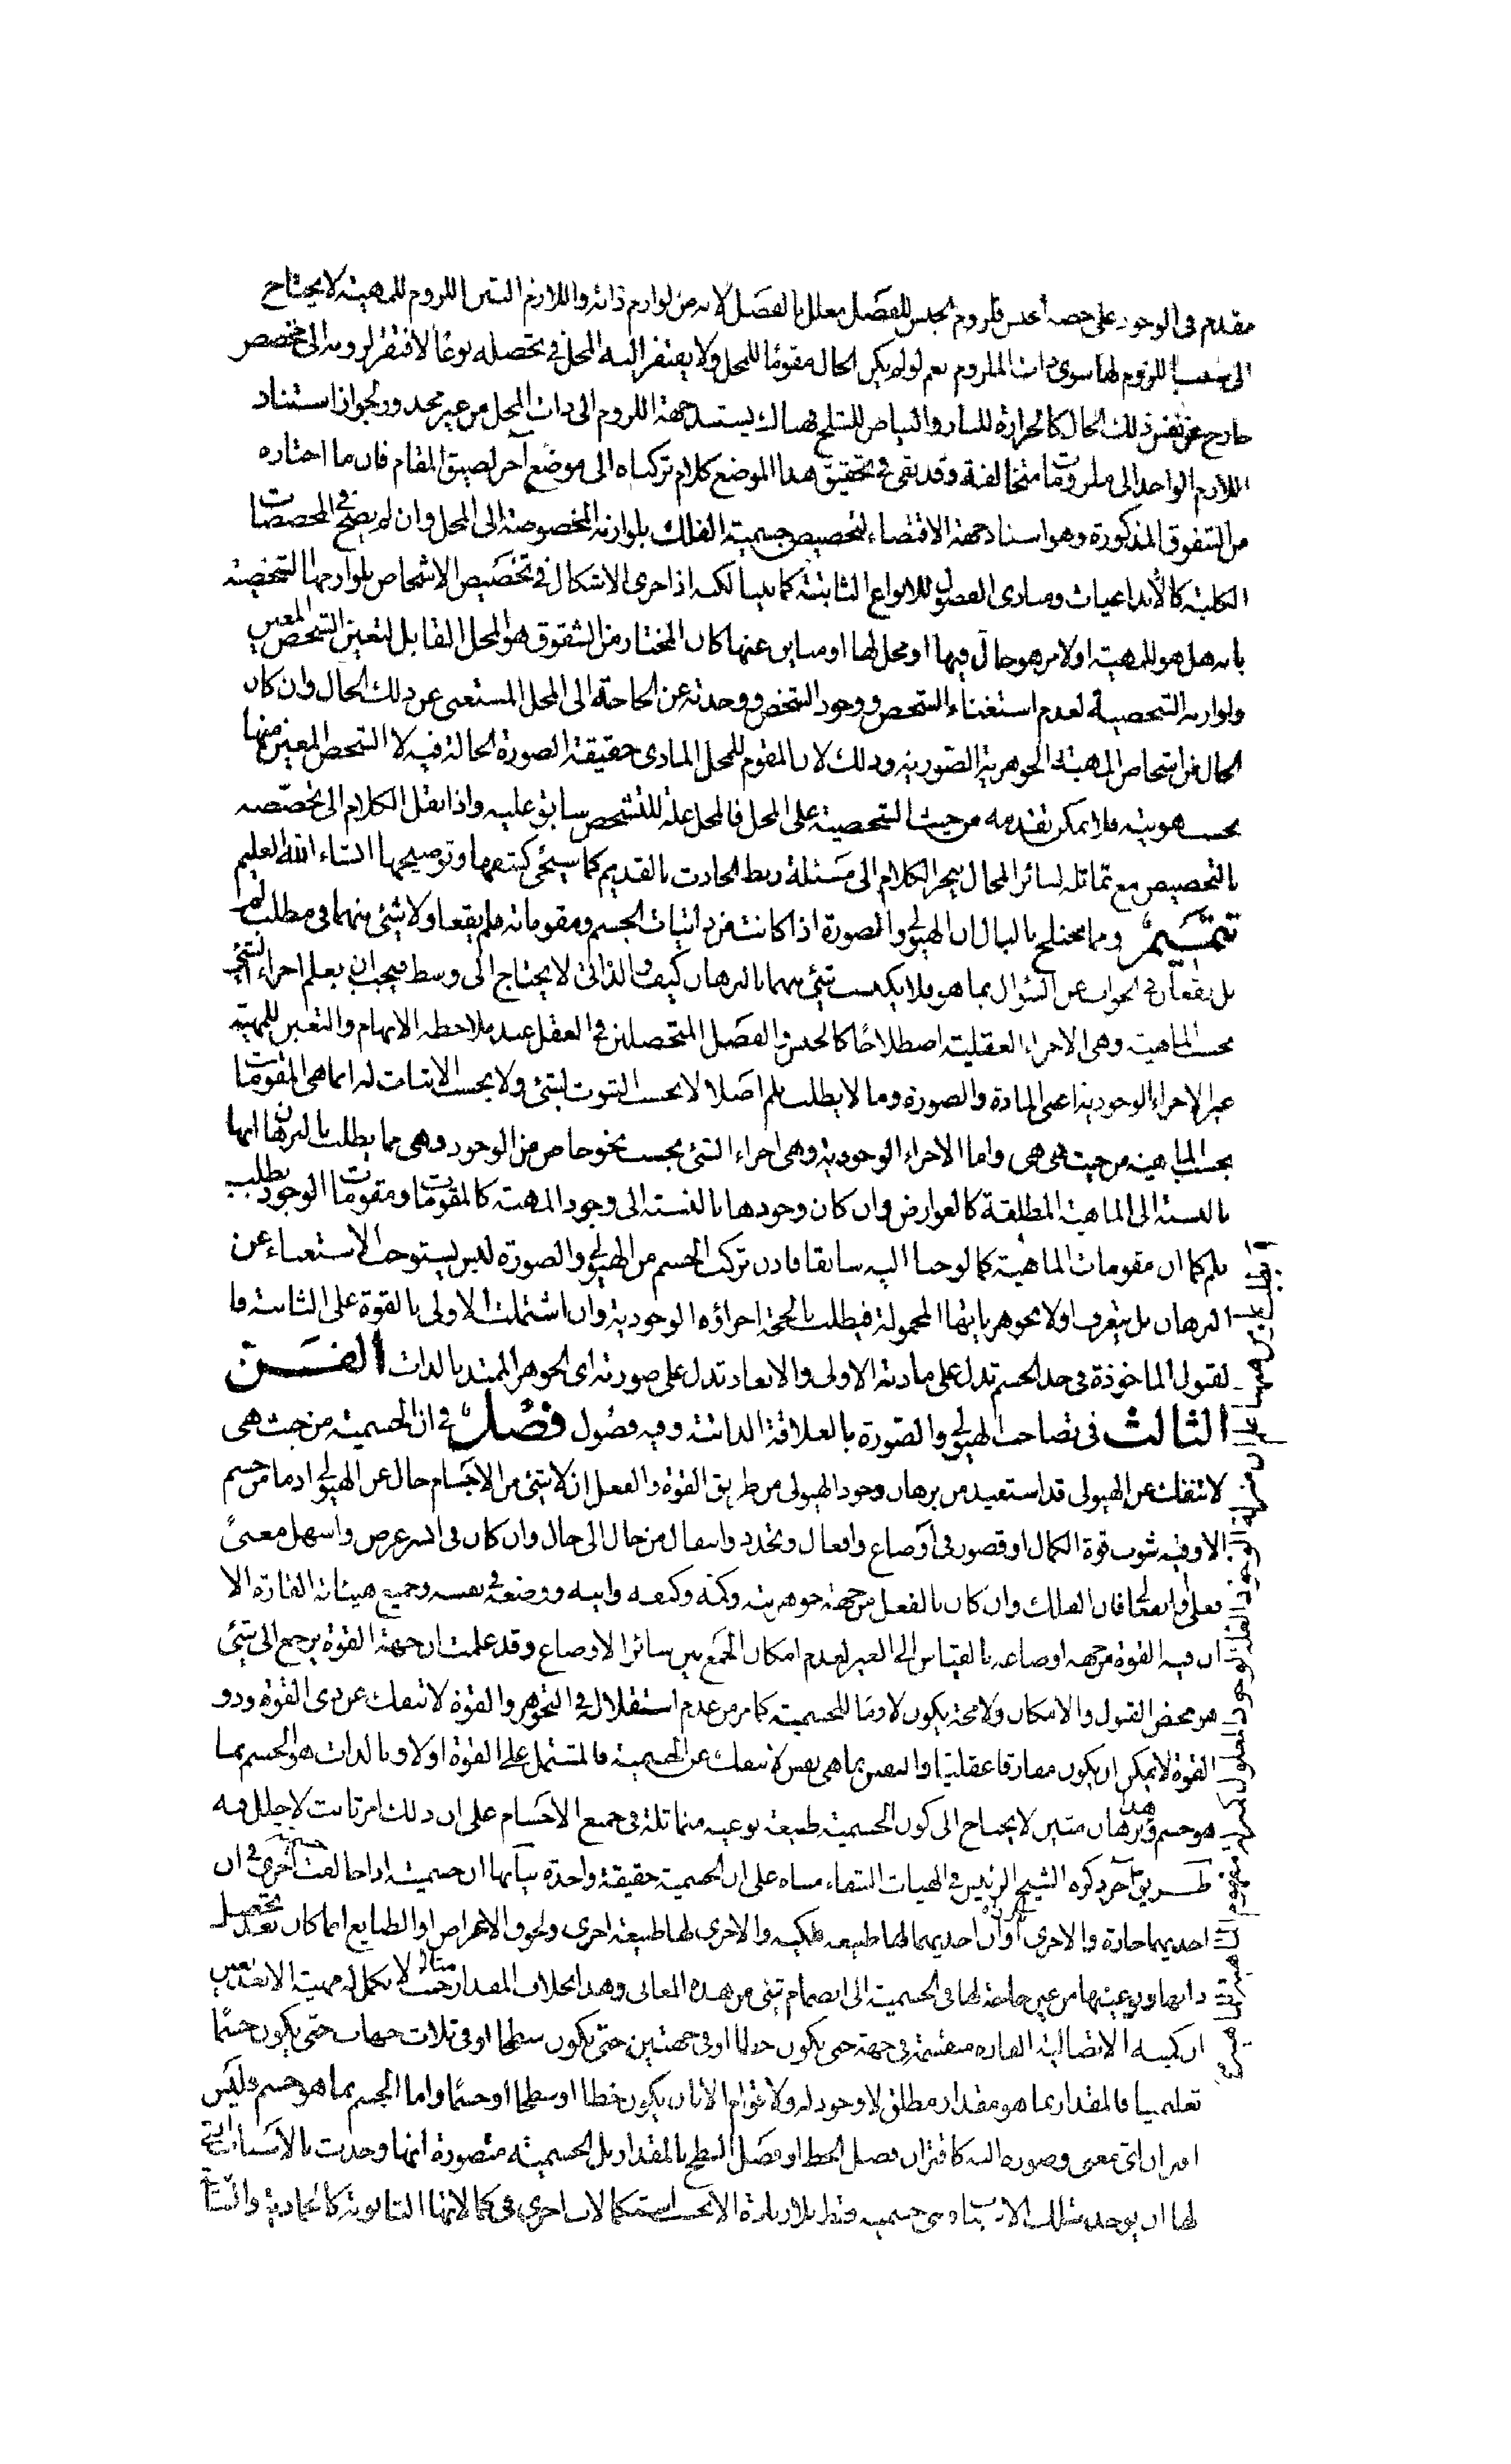 مقدم فى الوجود على حصة الجنس فلزوم الجنس للفصل معلل بالفصل لانه من لوازم ذاته واللازم البين اللزوم للمهية لا يحتاج
الى سبب للزوم لها سوى ذات الملزوم نعم لو لم يكن الحال مقوما للمحل ولا يفتقر اليه المحل فى تحصله نوعا لافتقر لزومه الى مخصص
خارج عن نفس ذلك الحال كالحرارة للنار والبياض للثلج فهناك يستند جهة اللزوم الى ذات المحل من غير محذور لجواز استناد
اللازم الواحد الى ملزومات متخالفة وقد بقى فى تحقيق هذا الموضع كلام تركناه الى موضع آخر لضيق المقام فان ما اختاره
من الشقوق المذكورة وهو اسناد جهة الاقتضاء لتخصيص جسمية الفلك بلوازمه المخصوصة الى المحل وان لم يصح فى المخصصات
الكلية كالابداعيات ومبادى الفصول للانواع الثابتة كما بينا لكنه اذا جرى الاشكال فى تخصيص الاشخاص بلوازمها الشخصية
بانه هل هو للمهية اولا من هو حال فيها او محل لها او مباين عنها كان المختار من الشقوق هو المحل القابل لتعين الشخص المعين
ولوازمه الشخصية لعدم استغناء الشخص ووجود الشخص ووحدته عن الحاجة الى المحل المستغنى عن ذلك الحال وان كان
الحال من اشخاص المهية الجوهرية الصورية وذلك لان المقوم للمحل المادى حقيقة الصورة الحالة فيه لا الشخص المعين منها
بحسب هويته فلا يمكن تقدمه من حيث الشخصية على المحل فالمحل علة للتشخص سابق عليه واذا نقل الكلام الى تخصصه
بالتخصيص مع تماثله لسائر المحال ينجر الكلام الى مسئلة ربط الحادث بالقديم كما سيجئ كيفيتها وتوضيحها انشاء الله العليم
تتميم ومما يختلج بالبال ان الهيولى والصورة اذا كانتا من ذاتيات الجسم ومقوماته فلم يقعا ولا شئ منهما فى مطلب لم
بل يقعان فى الجواب عن السؤال بما هو فلا يكتسب شئ منهما بالبرهان كيف والذاتى لا يحتاج الى وسط فيجب ان يعلم اجزاء الشئ
بحسب الماهية وهى الاجزاء العقلية اصطلاحا كالجنس والفصل المتحصلين فى العقل عند ملاحظة الابهام والتعين للمهية
غير الاجزاء الوجودية اعنى المادة والصورة وما لا يطلب بلم اصلا لا بحسب الثبوت لشئ ولا بحسب الاثبات له انما هى المقومات
بحسب الماهية من حيث هى هى واما الاجزاء الوجودية وهى اجزاء الشئ بحسب نحو خاص من الوجود وهى مما يطلب بالبرهان انها
بالنسبة الى الماهية المطلقة كالعوارض وان كان وجودها بالنسبة الى وجود المهية كالمقومات ومقومات الوجود يطلب
بلم كما ان مقومات الماهية كما لوحنا اليه سابقا فاذن تركب الجسم من الهيولى والصورة ليس يستوجب الاستغناء عن
البرهان بل يتعرف اولا بجوهرياتها المحمولة فيطلب بالحجة اجزاؤه الوجودية وان اشتملت الاولى بالقوة على الثانية فا
لقبول الماخوذة فى حد الجسم تدل على مادته الاولى والابعاد تدل على صورته اى الجوهر الممتد بالذات الفــن
الثالث فى تصاحب الهيولى والصورة بالعلاقة الذاتية وفيه فصول فصل فى ان الجسمية من حيث هى
لا تنفك عن الهيولى قد استفيد من برهان وجود الهيولى من طريق القوة والفعل ان لا شئ من الاجسام خال عن الهيولى اذ ما من جسم
الا وفيه شوب قوة الكمال او قصور فى اوضاع وافعال وتجدد وانتقال من حال الى حال وان كان فى ايسر عرض واسهل معنى
فان الفلك وان كان بالفعل من جهة جوهريته وكمه وكيفه واينه ووضعه فى نفسه وجميع هيئاته القارة الا
ان فيه القوة من جهة اوضاعه بالقياس الى الغير لعدم امكان الجمع بين سائر الاوضاع وقد علمت ان جهة القوة يرجع الى شئ
هو محض القبول والامكان ولا محة يكون لازما للجسمية كما مر من عدم استقلاله فى التجوهر والقوة لا تنفك عن ذى القوة وذو
القوة لا يمكن ان يكون مفارقا عقليا والنفس بما هى نفس لا تنفك عن الجسمية فالمشتمل على القوة اولا وبالذات هو الجسم بما
هو جسم وهذا برهان متين لا يحتاج الى كون الجسمية طبيعة نوعية متماثلة فى جميع الاجسام على ان ذلك امر ثابت لا خلل فيه
طــريق آخر ذكره الشيخ الرئيس فى الهيات الشفاء مبناه على ان الجسمية حقيقة واحدة بيانها ان جسمية اذا خالفت جسمية اخرى فى ان
احديهما حارة والاخرى باردة او ان احديهما لها طبيعة فلكية والاخرى لها طبيعة اخرى ولحوق الاعراض او الطبايع انما كان بعد تحصيل
ذاتها ونوعيتها من غير حاجة لها فى الجسمية الى انضمام شئ من هذه المعانى وهذا بخلاف المقدار مثلا حيث لا يكمل له مهية الا بعد تعين
ان كميته الاتصالية القارة منقسمة فى جهة حتى يكون خطا او فى جهتين حتى يكون سطحا او فى ثلاث جهات حتى يكون جسما
تعليميا فالمقدار بما هو مقدار مطلق لا وجود له ولا قوام الا بان يكون خطا او سطحا او جسما واما الجسم بما هو جسم فليس
امر ان اى معنى وصورة اليه كاقتران فصل الخط او فصل السطح بالمقدار بل الجسمية متصورة انها وجدت بالاسباب التى
لها ان يوجد بتلك الاسباب وهى جسمية فقط بلا زيادة الا بحسب استكمالات اخرى فى كمالاتها الثانوية كالجمادية والنبا